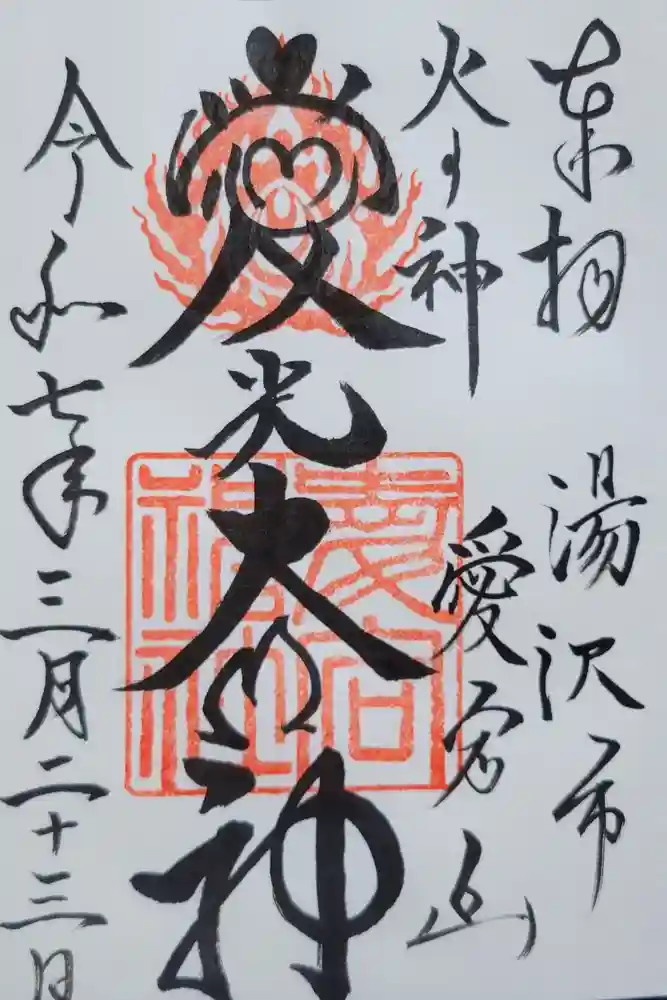 奥羽 湯沢市
火の神 愛宕山
愛光大神
愛宕神社
令和七年三月二十三日